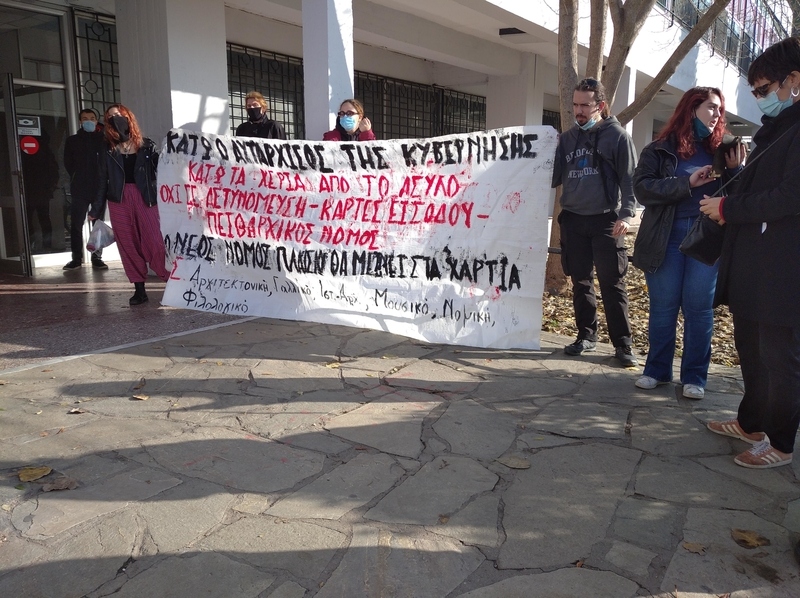 ΚΑΤΩ Ο ΑΥΤΑΡΧΙΣΜΟΣ ΤΗΣ ΚΥΒΕΡΝΗΣΗΣ
ΚΑΤΩ ΤΑ ΧΕΡΙΑ ΑΠΟ ΤΟ ΑΣΥΛΟ
ΟΧΙ ΣΕ ΑΣΤΥΝΟΜΕΥΣΗ-ΚΑΡΤΕΣ ΕΙΣΟΔΟΥ-
ΠΕΙΘΑΡΧΙΚΟΣ ΝΟΜΟΣ
Ο ΝΕΟΣ ΝΟΜΟΣ ΠΛΑΙΣΙΟ ΘΑ ΜΕΙΝΕΙ ΣΤΑ ΧΑΡΤΙΑ
Σ. Αρχιτεκτονική, Γαλλικό, Ιστ-Αρχ, Μουσικό, Νομική,
Φιλολογικό